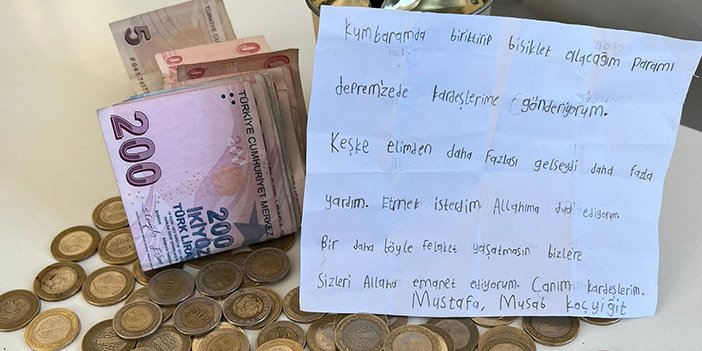 5
F04174
200
TÜRKİYE CUMHURİYET MERKEZ
200
İKİYÜZ
TÜRK LİRA
Kumbaramda biriktirip bisiklet alacağım paramı
depremzede kardeşlerime gönderiyorum.
Keşke elimden daha fazlası gelseydi daha fazla
yardım. Etmek isterdim Allahıma dua ediyorum
Bir daha böyle felaket yaşatmasın bizlere
Sizleri Allaha emanet ediyorum. Canım kardeşlerim.
Mustafa, Musab Koçyiğit